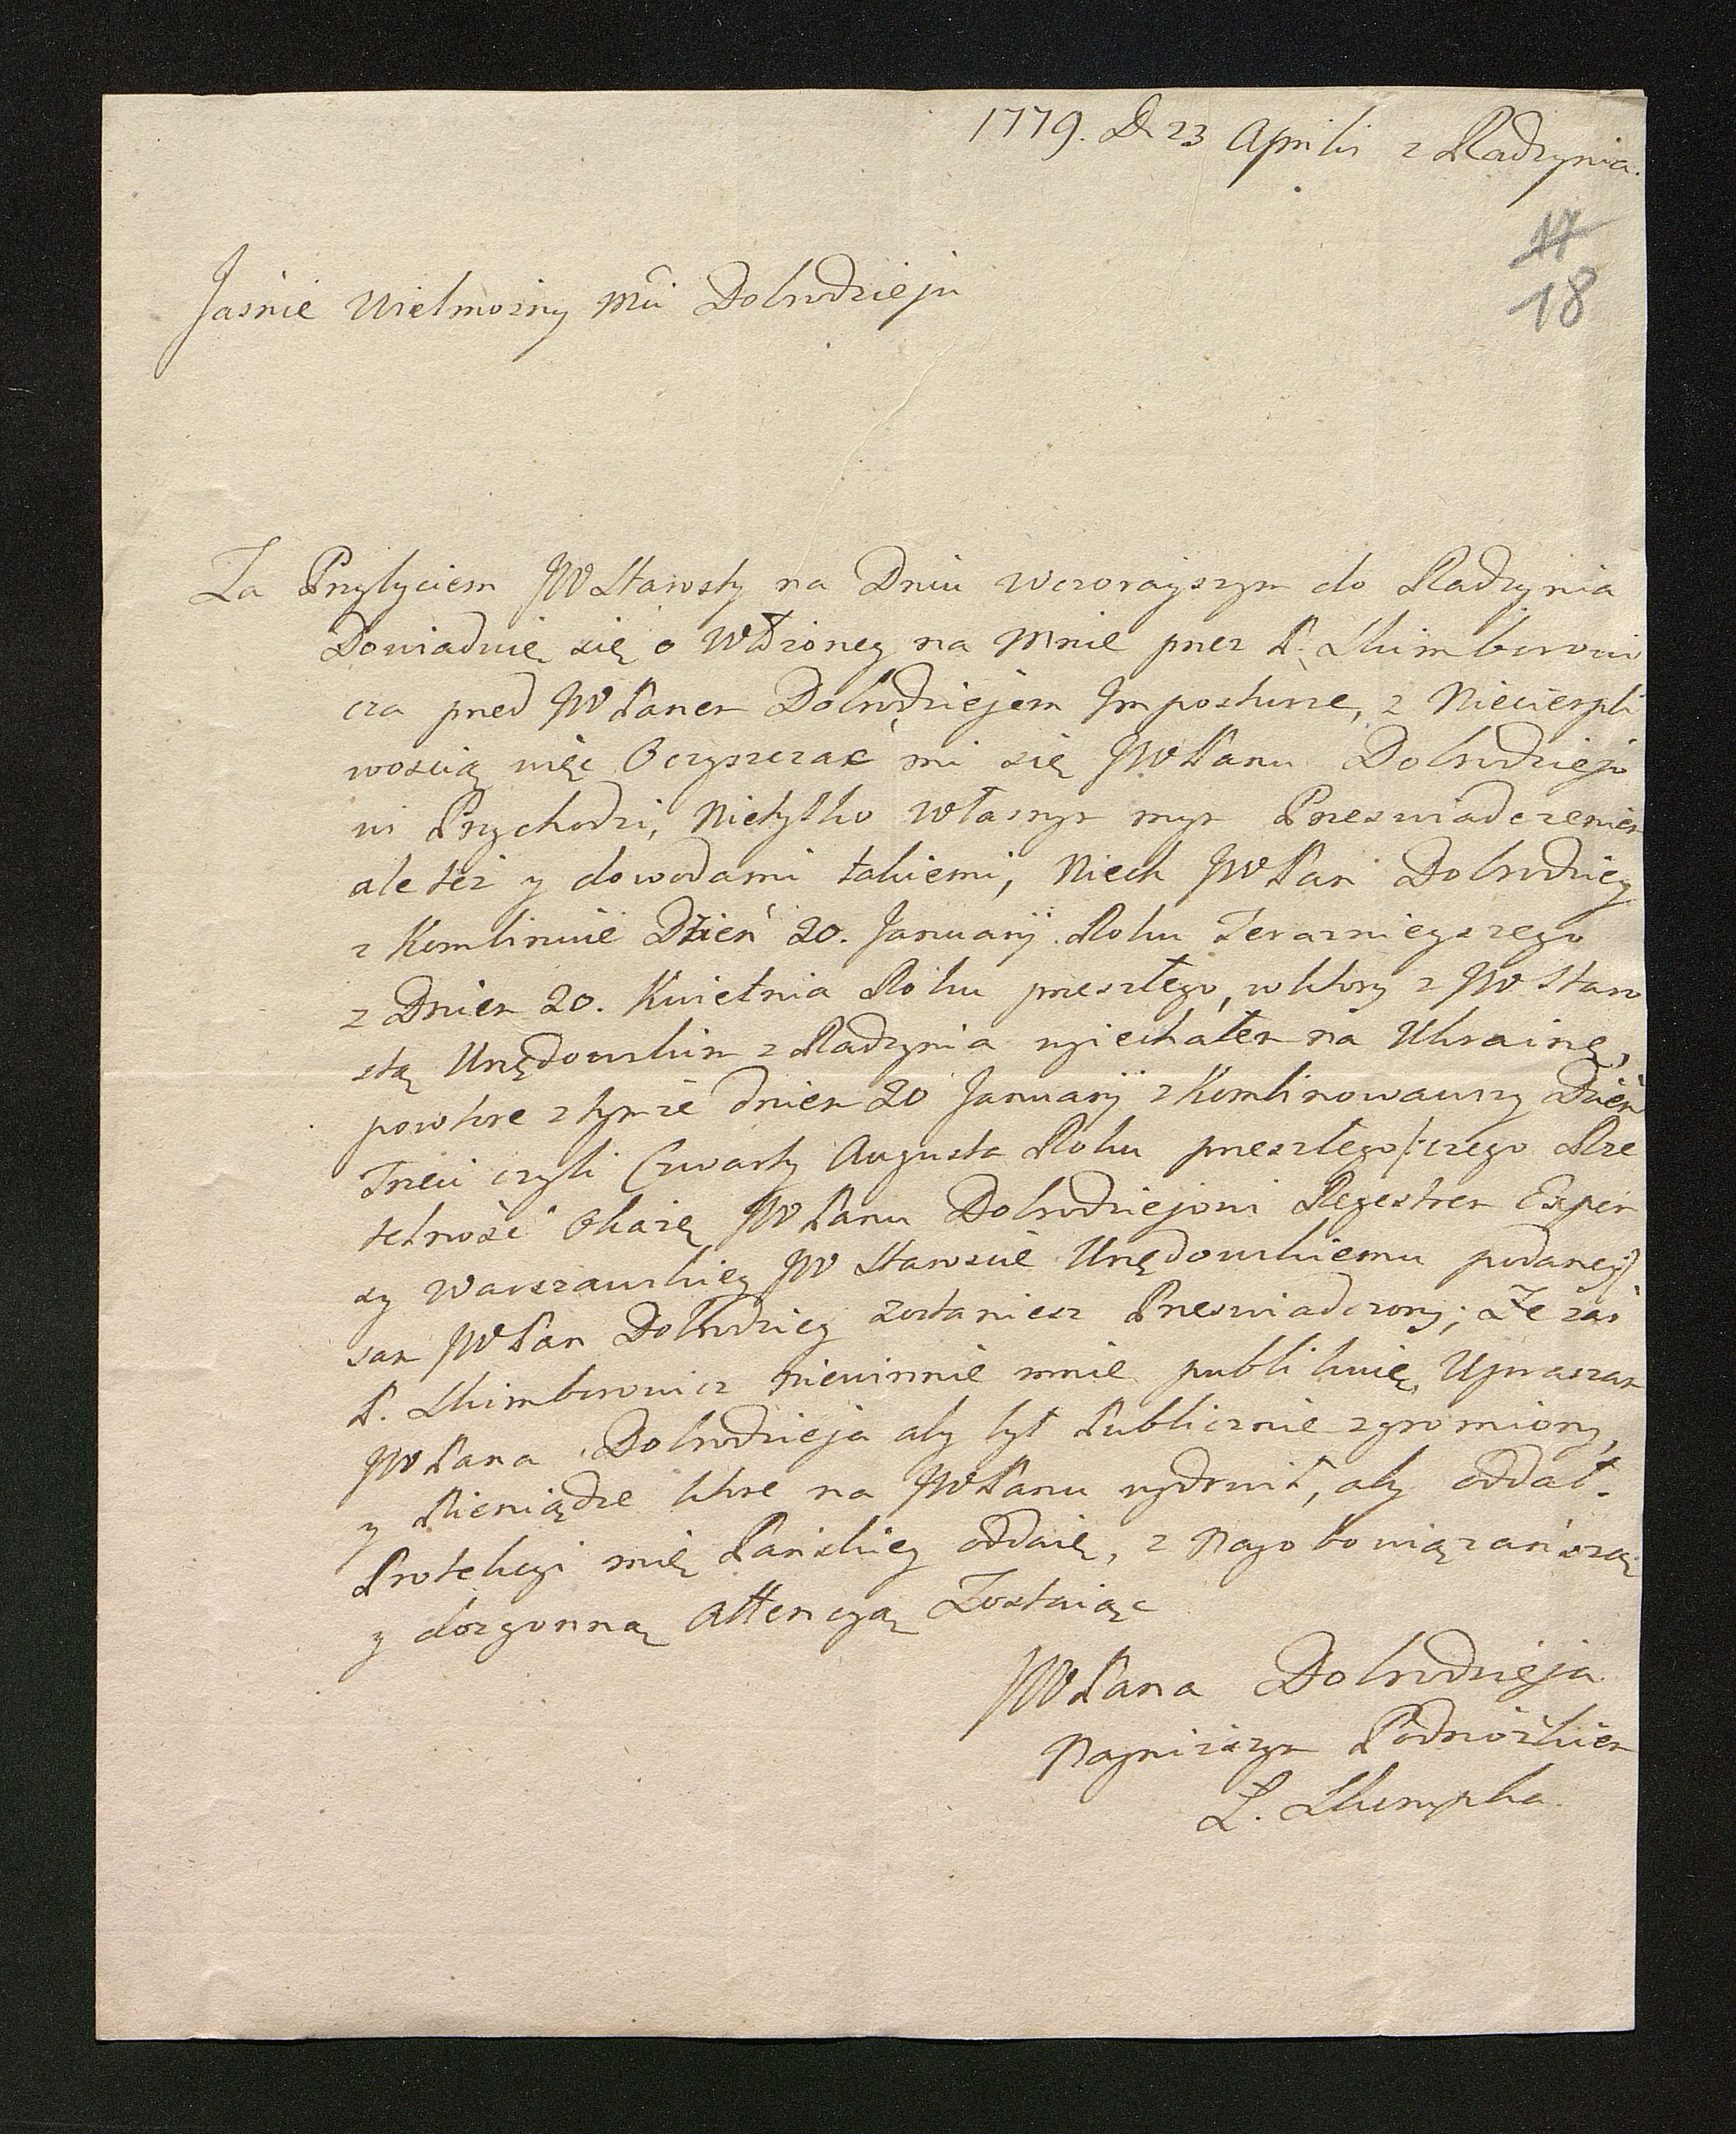 1779. D. 23 Aprilis z Radzynia.
17
18
Jaśnie Wielmożny Mći Dobrodzieju
Za Przybyciem JW Starosty na Dniu wczorayszym do Radzynia
Dowiaduię się o Włożoney na Mnie przez P. Skimborowi
cza przed JWPanem Dobrodziejem Imposturze, z Niecierpli
wością więc Oczyszczać mi się JWPanu Dobrodziejo
wi Przychodzi, Nietylko własnym mym Przeswiadczeniem
ale też y dowodami takiemi, Niech JWPan Dobrodziey
z Kombinuie Dzień 20. Januarij Roku Terazniejszego
z Dniem 20. Kwietnia Roku przeszłego, w ktory z JW Staro
stą Urzędowskim z Radzynia wyiechałem na Ukrainę,
powtore z tymże dniem 20 Januarij z Kombinowawszy Dzień
Trzeci czyli Czwarty Augusta Roku przeszłego /: czego Rze
telność Okażę JWPanu Dobrodziejowi Regestrem Expen
sy Warszawskiey JW Staroscie Urzędowskiemu podaney :/
sam JWPan Dobrodziey zostaniesz Przeswiadczony; Że zaś
P. Skimborowicz niewinnie mnie publikuię, Upraszam
JWPana Dobrodzieja aby był Publicznie zgromiony,
y Pieniądze ktore na JWPanu wydrwił, aby oddał.
Protekcyi mię Pańskiey oddaię, z Nayobowiązańszą
y dozgonną Attencyą Zostaiąc
JWPana Dobrodzieja
Nayniższym Podnóżkiem
L. Skumpka.